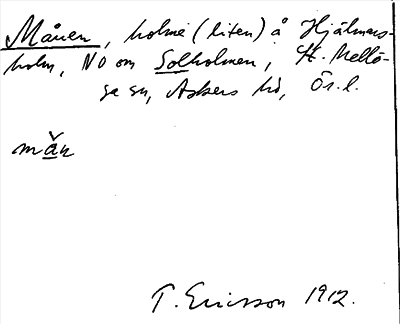 Månen, holme (liten) å Hjälmars-
holm, NO om Solholmen, St. Mellö-
sa sn, Askers hd, Ör. l.
măn
T. Ericsson 1912.